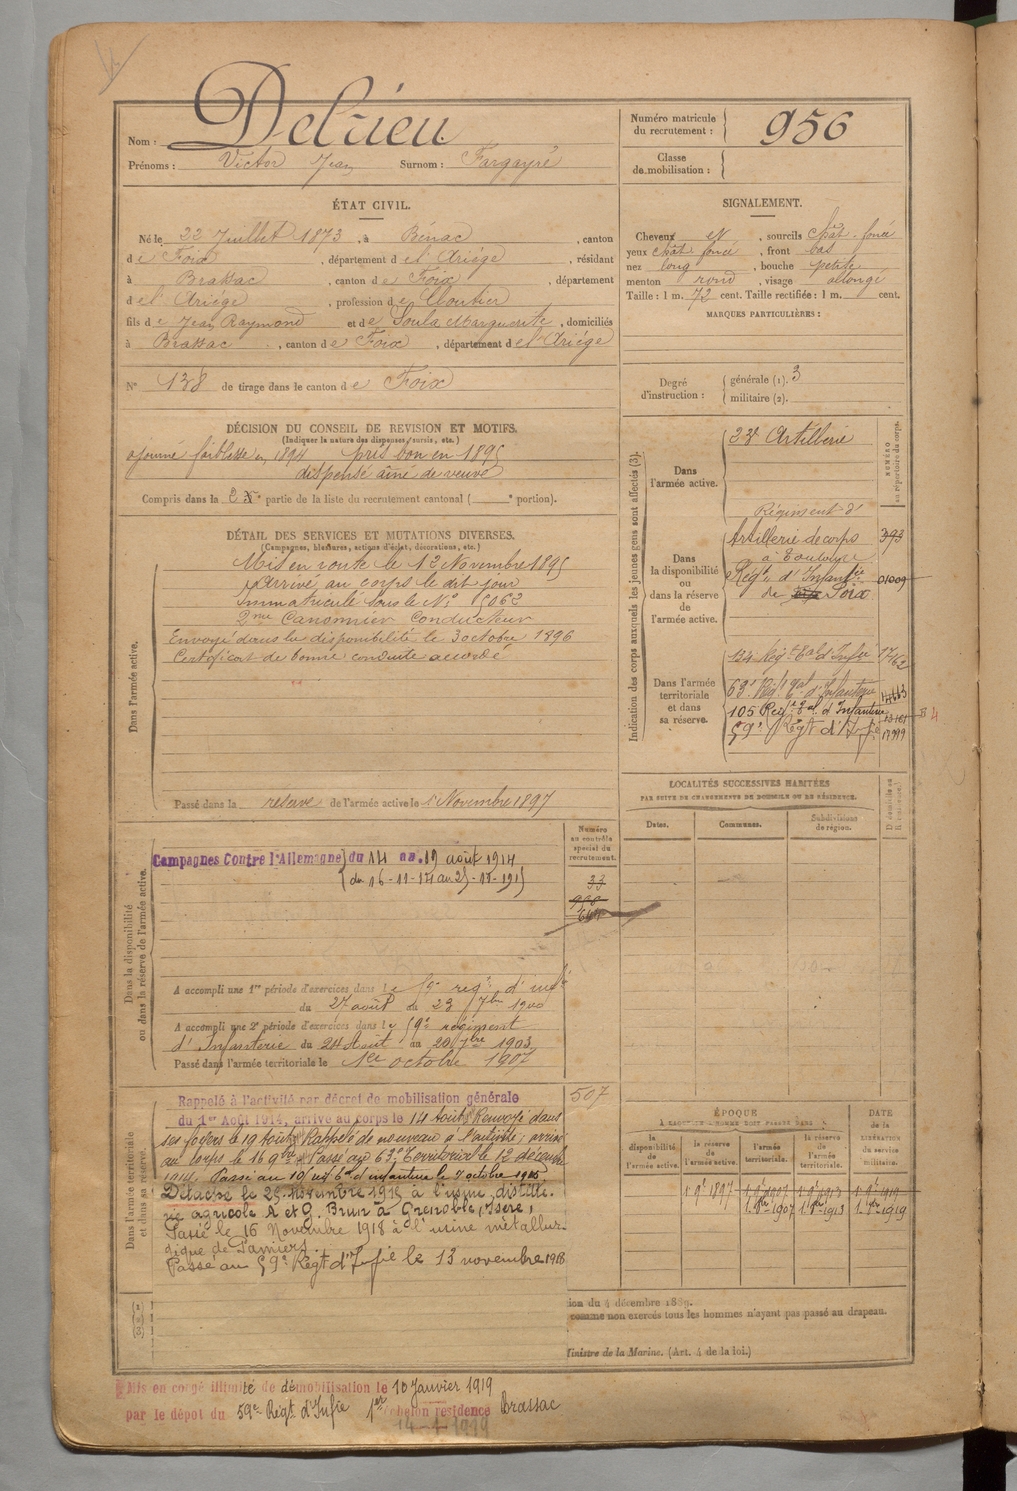 Nom : Delrieu
Prénoms : Victor Jean Surnom : Fargayré
Numéro matricule du recrutement : 956
Classe de mobilisation :
ÉTAT CIVIL.
Né le 22 Juillet 1873, à Bénac, canton
de Foix, département de l'Ariége, résidant
à Brassac, canton de Foix, département
de l'Ariége, profession de Cloutier
fils de Jean Raymond et de Soula Marguerite, domiciliés
à Brassac, canton de Foix, département de l'Ariége
N° 138 de tirage dans le canton de Foix
SIGNALEMENT.
Cheveux et, sourcils chât. foncé
yeux chât foncé, front bas
nez long, bouche petite
menton rond, visage allongé
Taille : 1 m. 72 cent. Taille rectifiée : 1 m. cent.
MARQUES PARTICULIÈRES :
Degré d'instruction : générale (1). 3
militaire (2).
DÉCISION DU CONSEIL DE REVISION ET MOTIFS.
(Indiquer la nature des dispenses, sursis, etc.)
ajourné faiblesse en 1894 pris bon en 1895
dispensé aîné de veuve
Compris dans la 2 e partie de la liste du recrutement cantonal ( e portion).
DÉTAIL DES SERVICES ET MUTATIONS DIVERSES.
(Campagnes, blessures, actions d'éclat, décorations, etc.)
Dans l'armée active.
Mis en route le 12 Novembre 1895
Arrivé au corps le dit jour
Immatriculé sous le N° 5062
2me Canonnier Conducteur
Envoyé dans la disponibilité le 3 octobre 1896
Certificat de bonne conduite accordé
Passé dans la réserve de l'armée active le 1 Novembre 1897
Indication des corps auxquels les jeunes gens sont affectés (3).
NUMÉRO au répertoire du corps.
Dans l'armée active.
23e Artillerie
Dans la disponibilité ou dans la réserve de l'armée active.
Régiment d'
Artillerie de corps 393
à Toulouse
Régt d'Infantie 01009
de Foix
Dans l'armée territoriale et dans sa réserve.
134 Régt tal d'Infie
63e Régt tal d'Infanterie
105 Régt tal d'Infanterie
59e Régt d'Infie
LOCALITÉS SUCCESSIVES HABITÉES
PAR SUITE DE CHANGEMENTS DE DOMICILE OU DE RÉSIDENCE.
Dates. Communes. Subdivisions de région. D domicile ou R résidence.
Numéro au contrôle spécial du recrutement.
33
Dans la disponibilité ou dans la réserve de l'armée active.
Campagnes Contre l'Allemagne du 14 au 19 août 1914
A accompli une 1re période d'exercices dans le régt d'infie
du 27 août au 23 7bre 1900
A accompli une 2e période d'exercices dans le 59e régiment
d'Infanterie du 24 Août au 20 7bre 1903
Passé dans l'armée territoriale le 1er octobre 1907
507
Dans l'armée territoriale et dans sa réserve.
Rappelé à l'activité par décret de mobilisation générale
du 1er Août 1914, arrivé au corps le 14 Août. Renvoyé dans
ses foyers le 19 Août. Rappelé de nouveau à l'activité, arrivé
au corps le 16 9bre. Passé au 63e Territorial le 12 décembre
1914. Passé au 105 rég tal d'infanterie le 7 octobre 1915
Détaché le 25 novembre 1915 à l'usine distille-
rie agricole A et G. Brun à Grenoble, Isère,
Passé le 16 Novembre 1918 à l'usine métallur-
gique de Pamiers.
Passé au 59e Régt d'Infie le 13 novembre 1918
ÉPOQUE
À LAQUELLE L'HOMME DOIT PASSER DANS
DATE DE LA LIBÉRATION du service militaire.
la disponibilité de l'armée active. la réserve de l'armée active. l'armée territoriale. la réserve de l'armée territoriale.
1 9e 1897 1 9e 1907 1 9e 1913 1 9e 1919
1. 8bre 1907 1. 8bre 1913 1. 8bre 1919
(1) (2) (3)
tion du 4 décembre 1889.
comme non exercés tous les hommes n'ayant pas passé au drapeau.
Ministre de la Marine. (Art. 4 de la loi.)
Mis en congé illimité de démobilisation le 10 Janvier 1919
par le dépôt du 59e Régt d'Infie 1er échelon résidence Brassac